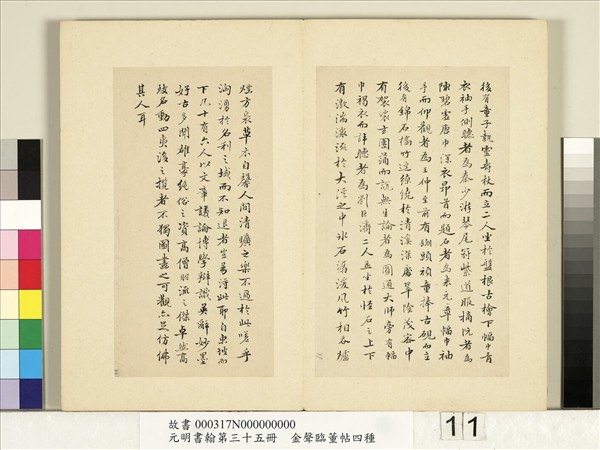 後有童子執靈壽杖而立二人坐於盤根古檜下幅巾青
衣袖手側聽者為秦少游琴尾冠紫道服摘阮者為
陳碧虛唐巾深衣昂首而題石者為米元章幅巾袖
手而仰觀者為王仲至前有鬅頭頑童捧古硯而立
後有錦石橋竹逕繚繞於清溪深處翠陰茂密中
有袈裟坐團蒲而說無生論者為圓通大師旁有幅
巾褐衣而諦聽者為劉巨濟二人並坐於怪石之上下
有激湍潨流於大溪之中水石潺湲風竹相吞爐
煙方裊草木自馨人間清曠之樂不過於此嗟乎
洶湧於名利之域而不知退者豈易得此耶自東坡而
下凡十有六人以文章議論博學辯識英辭妙墨
好古多聞雄豪絕俗之資高僧羽流之傑卓然高
致名動四夷後之攬者不獨圖畫之可觀亦足仿佛
其人耳
故書 000317N000000000
元明書翰第三十五冊 金聲臨董帖四種
11